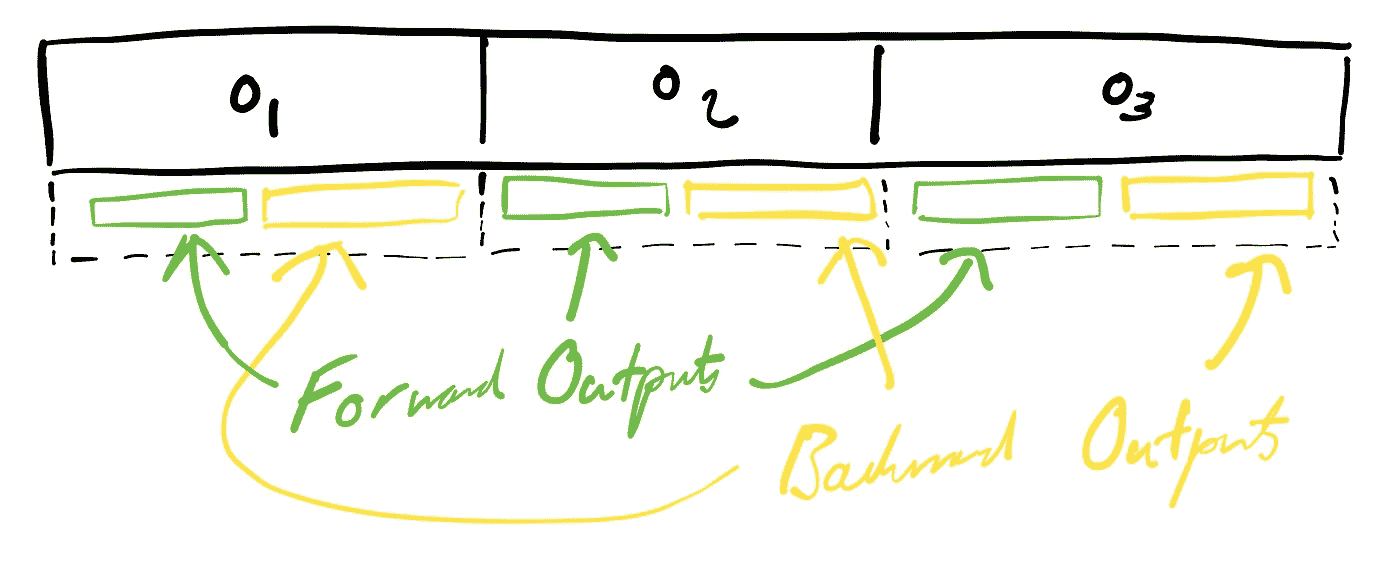 o1 o2 o3
Forward Outputs
Backward Outputs